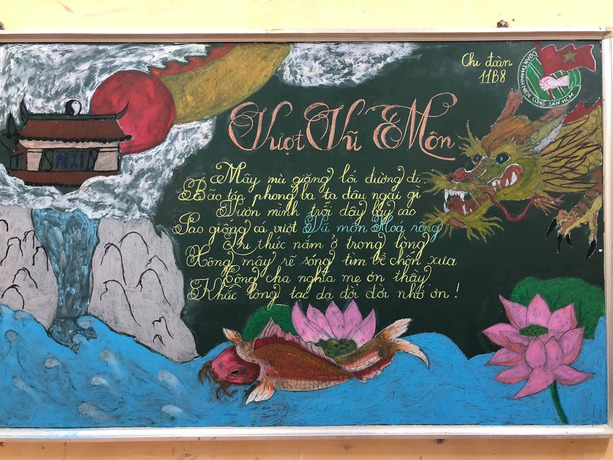 Chi đoàn
11B8
ĐOÀN THANH NIÊN CỘNG SẢN HCM
Vượt Vũ Môn
Mây mù giăng lối đường đi
Bão táp phong ba ta đâu ngại gì
Vươn mình trỗi dậy cao
Sao giống cá vượt Vũ môn Hoá rồng
thức nắm ở trong lòng
mây rẽ sóng tìm về chốn xưa
Công cha nghĩa mẹ ơn thầy
Khắc lòng tạc dạ đời đời nhớ ơn !